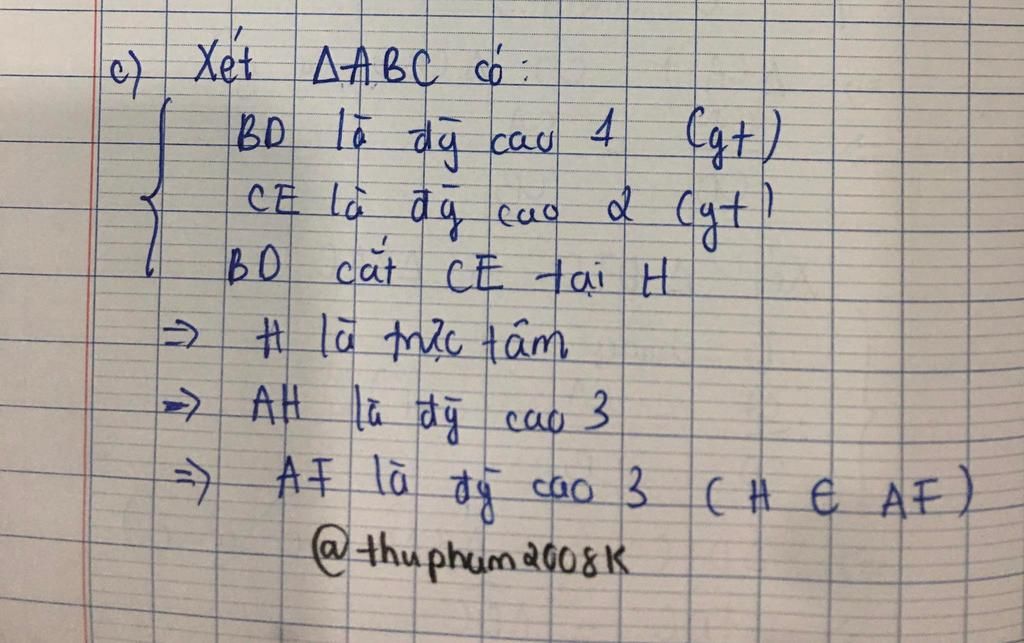 c) Xét ΔABC có:
BD là đg̃ cao 1 (gt)
CE là đg̃ cao 2 (gt)
BD cắt CE tại H
=> H là trực tâm
=> AH là đg̃ cao 3
=> AF là đg̃ cao 3 (H ∈ AF)
@thupham2008K